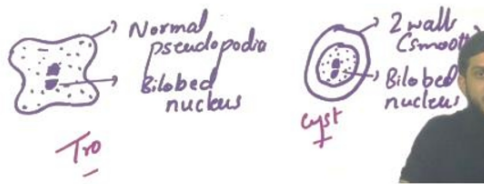 Normal
pseudopodia
Bilobed
nucleus
Tro
2 wall
(smooth
Bilobed
nucleus
cyst